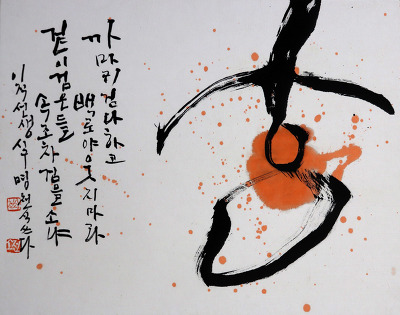 까마귀 검다 하고
백로야 웃지마라
겉이 검운들
속조차 검을소냐
이직선생 쓰다